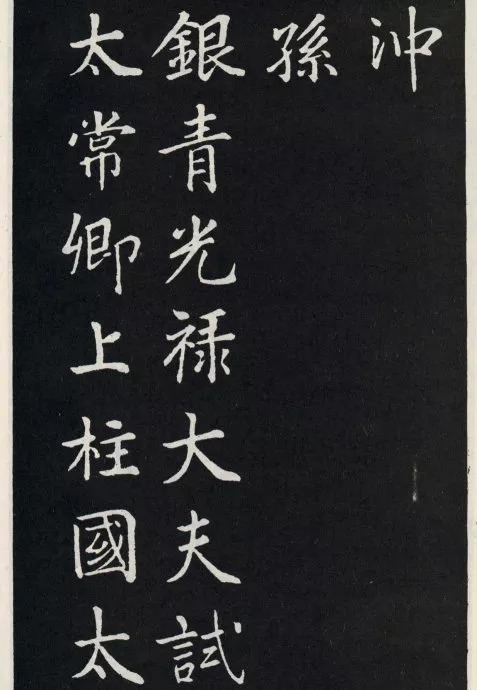 沖
孫
銀青光禄大夫試
太常卿上柱國太